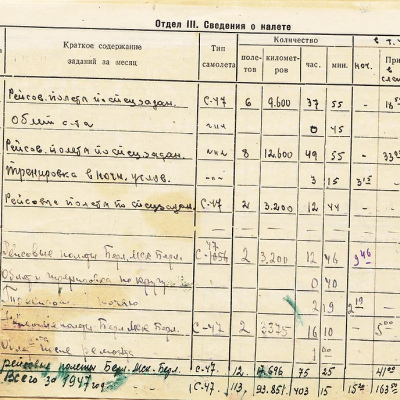 Отдел III. Сведения о налете
Краткое содержание заданий за месяц
Тип самолета
Количество
полетов
километров
час.
мин.
в т. ч.
ноч.
Рейсов. полеты по спецзадан. С-47 6 9.600 37 55 -
Облет с-та 0 45
Рейсов. полеты по спецзадан. 8 12.600 49 55 -
Тренировка в ночн. услов. 3 15 3 15
Рейсовые полеты по спецзадан. С-47 2 3.200 12 44
Рейсовые полеты Берл. Мск Берл. С-47 2 3,200 12 46 3 46
0 40
2 19 2 19
полеты Берл. Мск Берл. С-47 2 3375 16 10 - 5 00
1 00
рейсовые полеты Берл. Мск. Берл. С-47 12 17.696 75 25 41 00
Всего за 1947 год С-47. 113. 93.851. 403 15